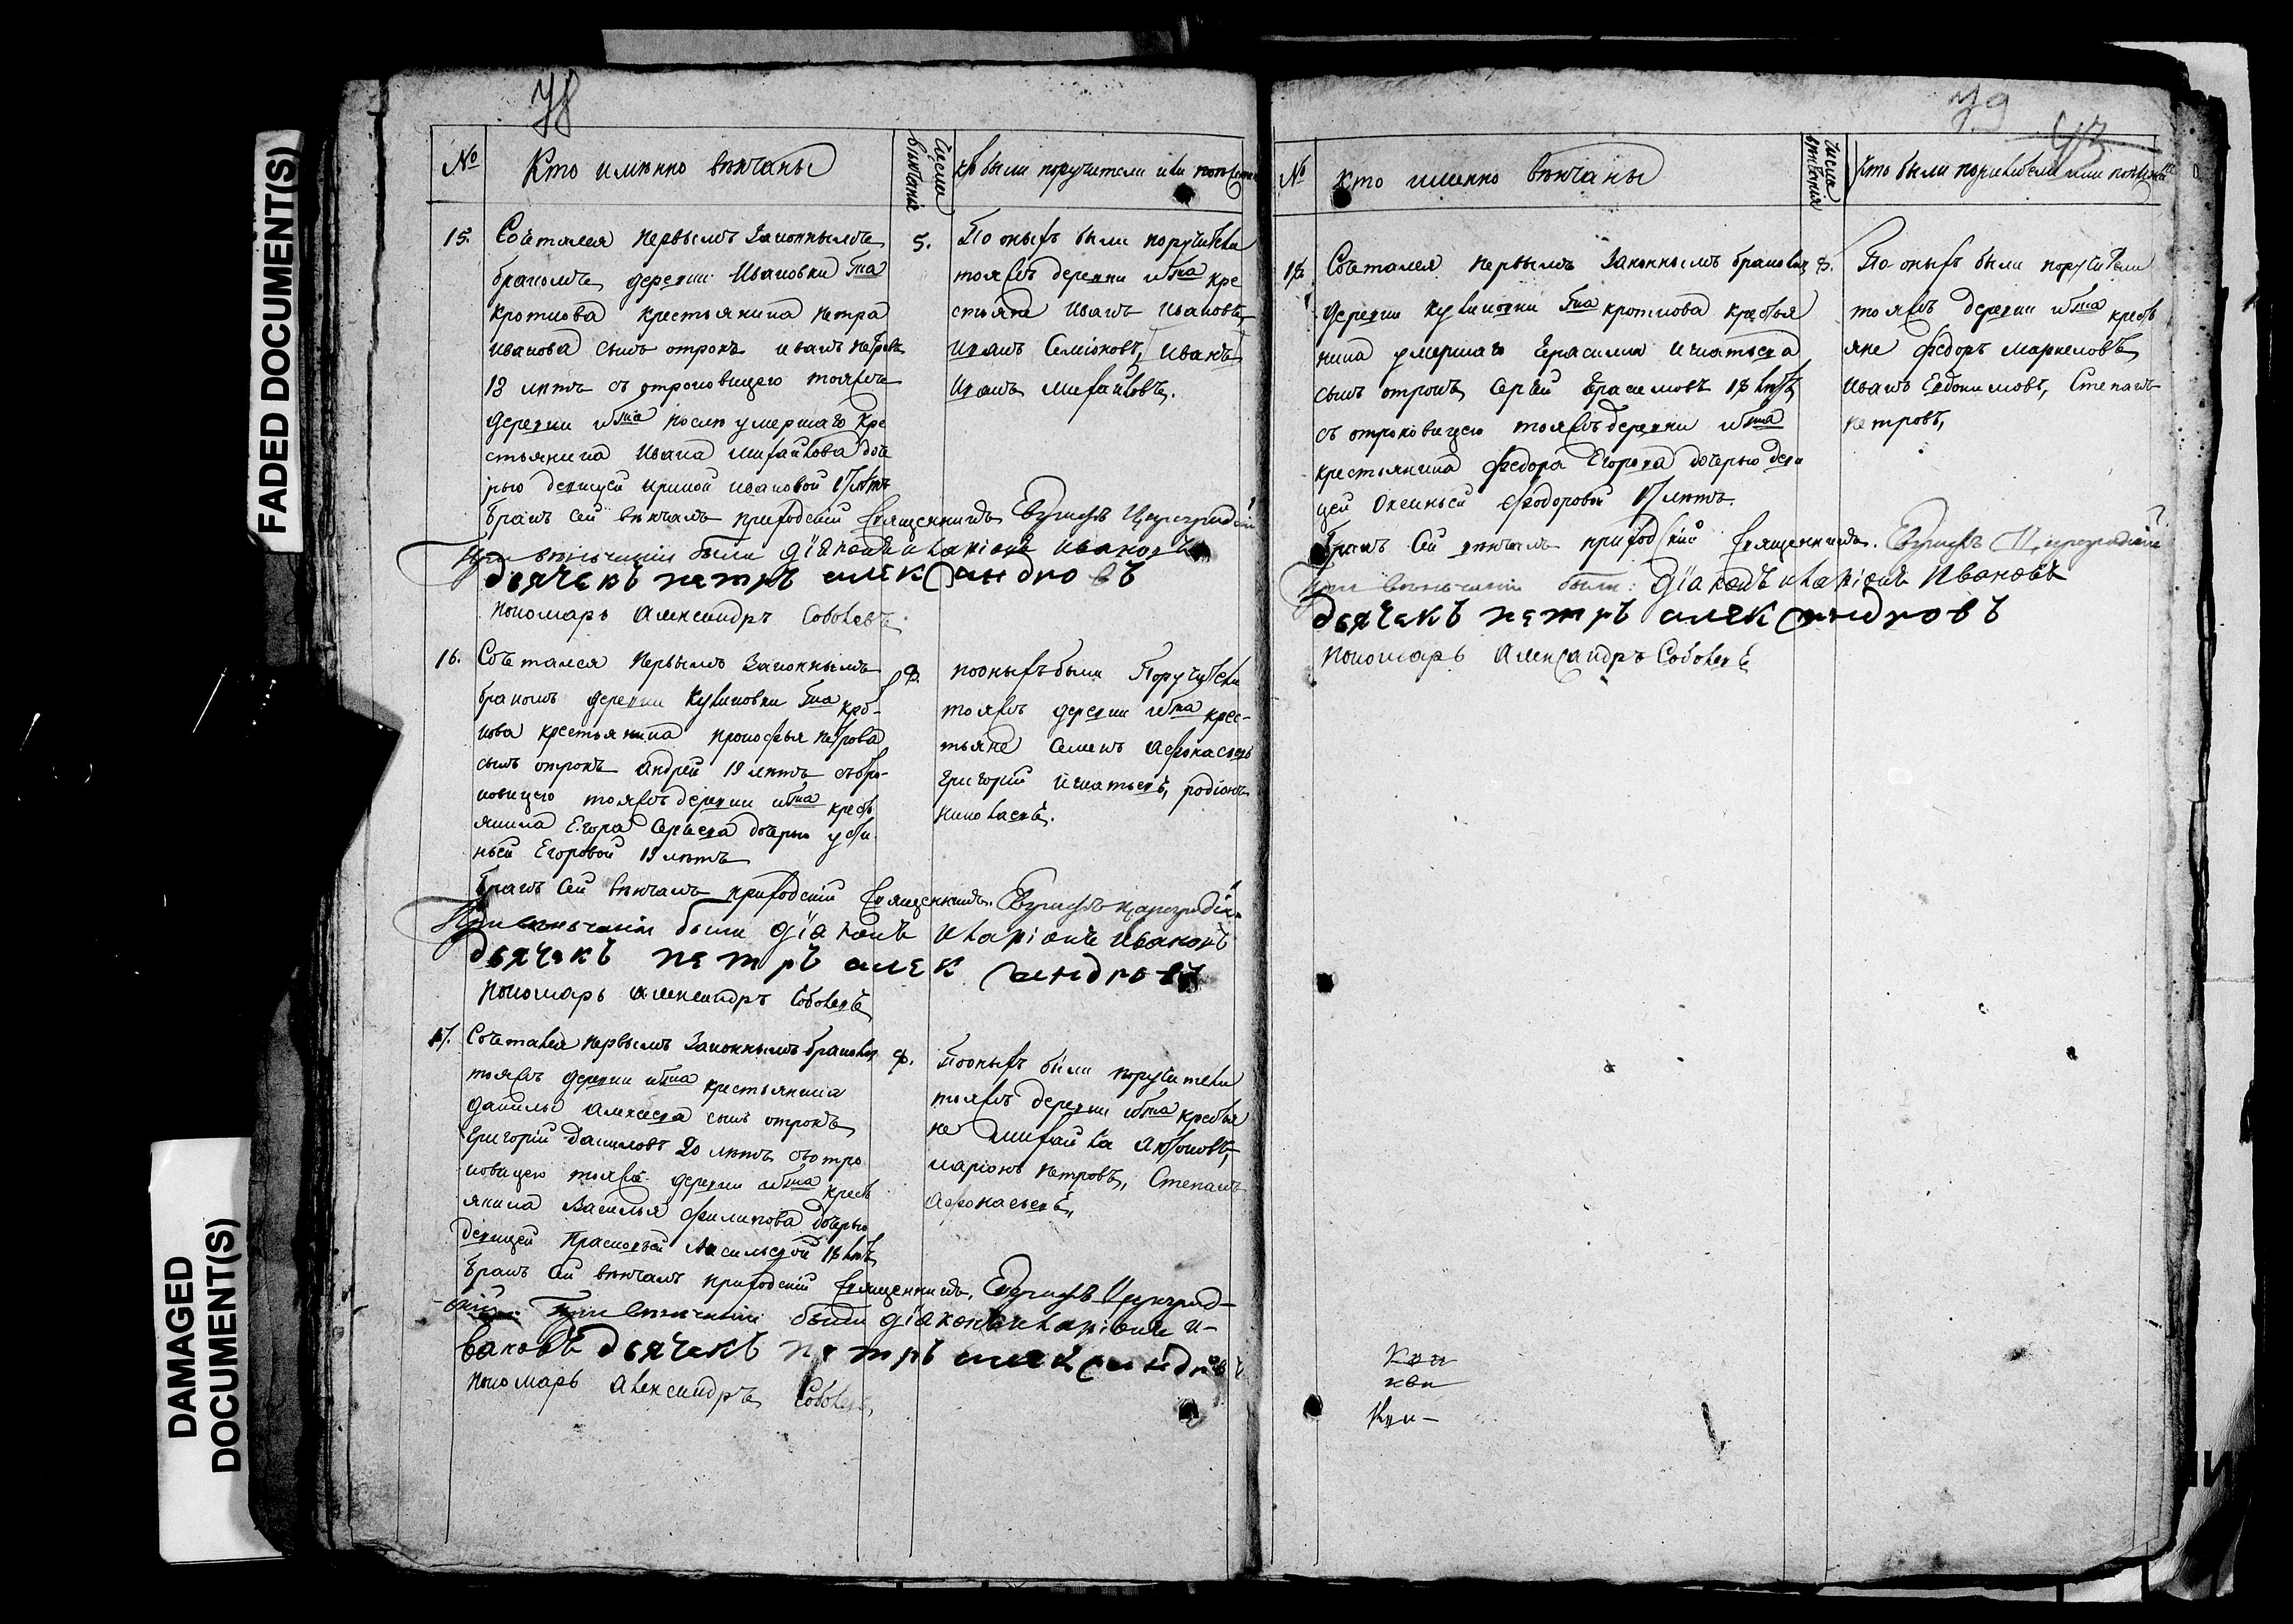 FADED DOCUMENT(S)
DAMAGED
DOCUMENT(S)
78
№
Кто имѣнно вѣнчаны
Число
вѣнчанія
кто были поручители или
15.
Сочетался первымъ Законнымъ
бракомъ, деревни Ивановки
Кроткова крестьянина Петра
Иванова сынъ отрокъ иванъ петровъ
18 лѣтъ съ отроковицею тояжъ
деревни послѣ умершаго Кре
стьянина Ивана Михайлова доче
рью девицей ириной ивановой 17 лѣтъ
5.
По оныхъ были поручители
тояжъ деревни кре
стьяне Иванъ Ивановъ,
Иванъ Семіоновъ, Иванъ
Иванъ Михайловъ.
Бракъ сей вѣнчалъ приходскій Священникъ
При вѣнчаніи были діаконъ иларіонъ ивановъ
дьячекъ петръ александровъ
пономарь Александръ Соболевъ
16.
Сочетался Первымъ Законнымъ
бракомъ деревни Крот-
кова крестьянина прокофья петрова
сынъ отрокъ Андрей 19 лѣтъ съ отро-
ковицею тояжъ деревни кресть
янина Егора Сергеева дочерью усти
ньей Егоровой 19 лѣтъ
8.
по оныхъ были Поручители
тояжъ деревни крес-
тьяне Семенъ Афонасьевъ
Григорій Игнатьевъ, родіонъ
николаевъ.
Бракъ сей вѣнчалъ приходскій Священникъ
При вѣнчаніи были діаконъ иларіонъ ивановъ
дьячекъ петръ александровъ
пономарь александръ Соболевъ
17.
Сочетался первымъ Законнымъ бракомъ
тояжъ деревни крестьянина
Данилы Алексеева сынъ отрокъ
Григорій Даниловъ 20 лѣтъ съ отро
ковицею тояжъ деревни кресть
янина Василья Филипова дочерью
девицей Прасковьей Васильевой 18 лѣтъ
8.
По оныхъ были поручители
тояжъ деревни крестья
не Михайла
ларіонъ петровъ, Степанъ
Афонасьевъ,
Бракъ сей вѣнчалъ приходскій Священникъ
При вѣнчаніи были діаконъ иларіонъ и-
вановъ дьячекъ петръ александровъ
пономарь Александръ Соболевъ
79
№
Кто именно вѣнчаны
Число
вѣнчанія
Кто были поручители или
18.
Сочетался первымъ Законнымъ бракомъ
деревни кроткова крестья
нина умершаго Герасима Игнатьева
сынъ отрокъ Сергѣй Герасимовъ 18 лѣтъ
съ отроковицею тояжъ деревни
крестьянина Федора Егорова дочерью деви
цей Оксиньей Федоровой 17 лѣтъ.
8.
По оныхъ были поручители
тояжъ деревни кресть
яне Федоръ маркеловъ
Иванъ Евдокимовъ, Степанъ
петровъ,
Бракъ сей вѣнчалъ приходскій Священникъ
При вѣнчаніи были: діаконъ иларіонъ Ивановъ
дьячекъ петръ александровъ
Пономарь Александръ Соболевъ